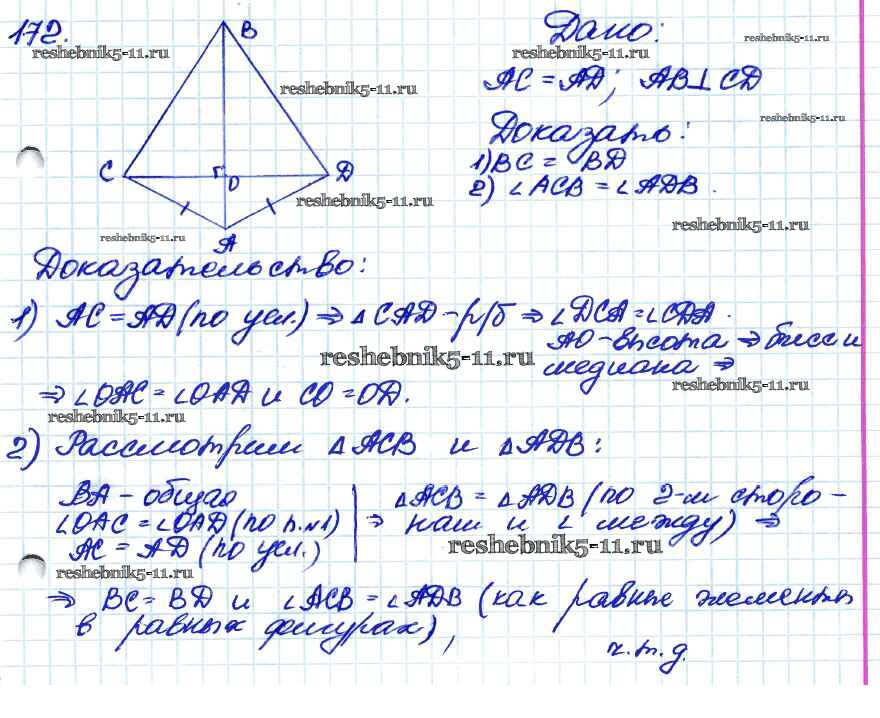 172.
reshebnik5-11.ru
B
C
D
O
A
reshebnik5-11.ru
reshebnik5-11.ru
reshebnik5-11.ru
Дано:
reshebnik5-11.ru
reshebnik5-11.ru
AC = AD; AB⊥CD
reshebnik5-11.ru
Доказать:
1) BC = BD
2) ∠ACB = ∠ADB.
reshebnik5-11.ru
Доказательство:
1) AC = AD (по усл.) ⇒ △CAD - р/б ⇒ ∠DCA = ∠CDA.
AO - высота ⇒ бисс и
медиана ⇒
reshebnik5-11.ru
reshebnik5-11.ru
⇒ ∠OAC = ∠OAD и CO = OD.
reshebnik5-11.ru
2) Рассмотрим △ACB и △ADB:
BA - общая
∠OAC = ∠OAD (по п.№1)
AC = AD (по усл.)
⇒ △ACB = △ADB (по 2-м сторо-
нам и ∠ между) ⇒
reshebnik5-11.ru
reshebnik5-11.ru
⇒ BC = BD и ∠ACB = ∠ADB (как равные элементы
в равных фигурах),
ч.т.д.